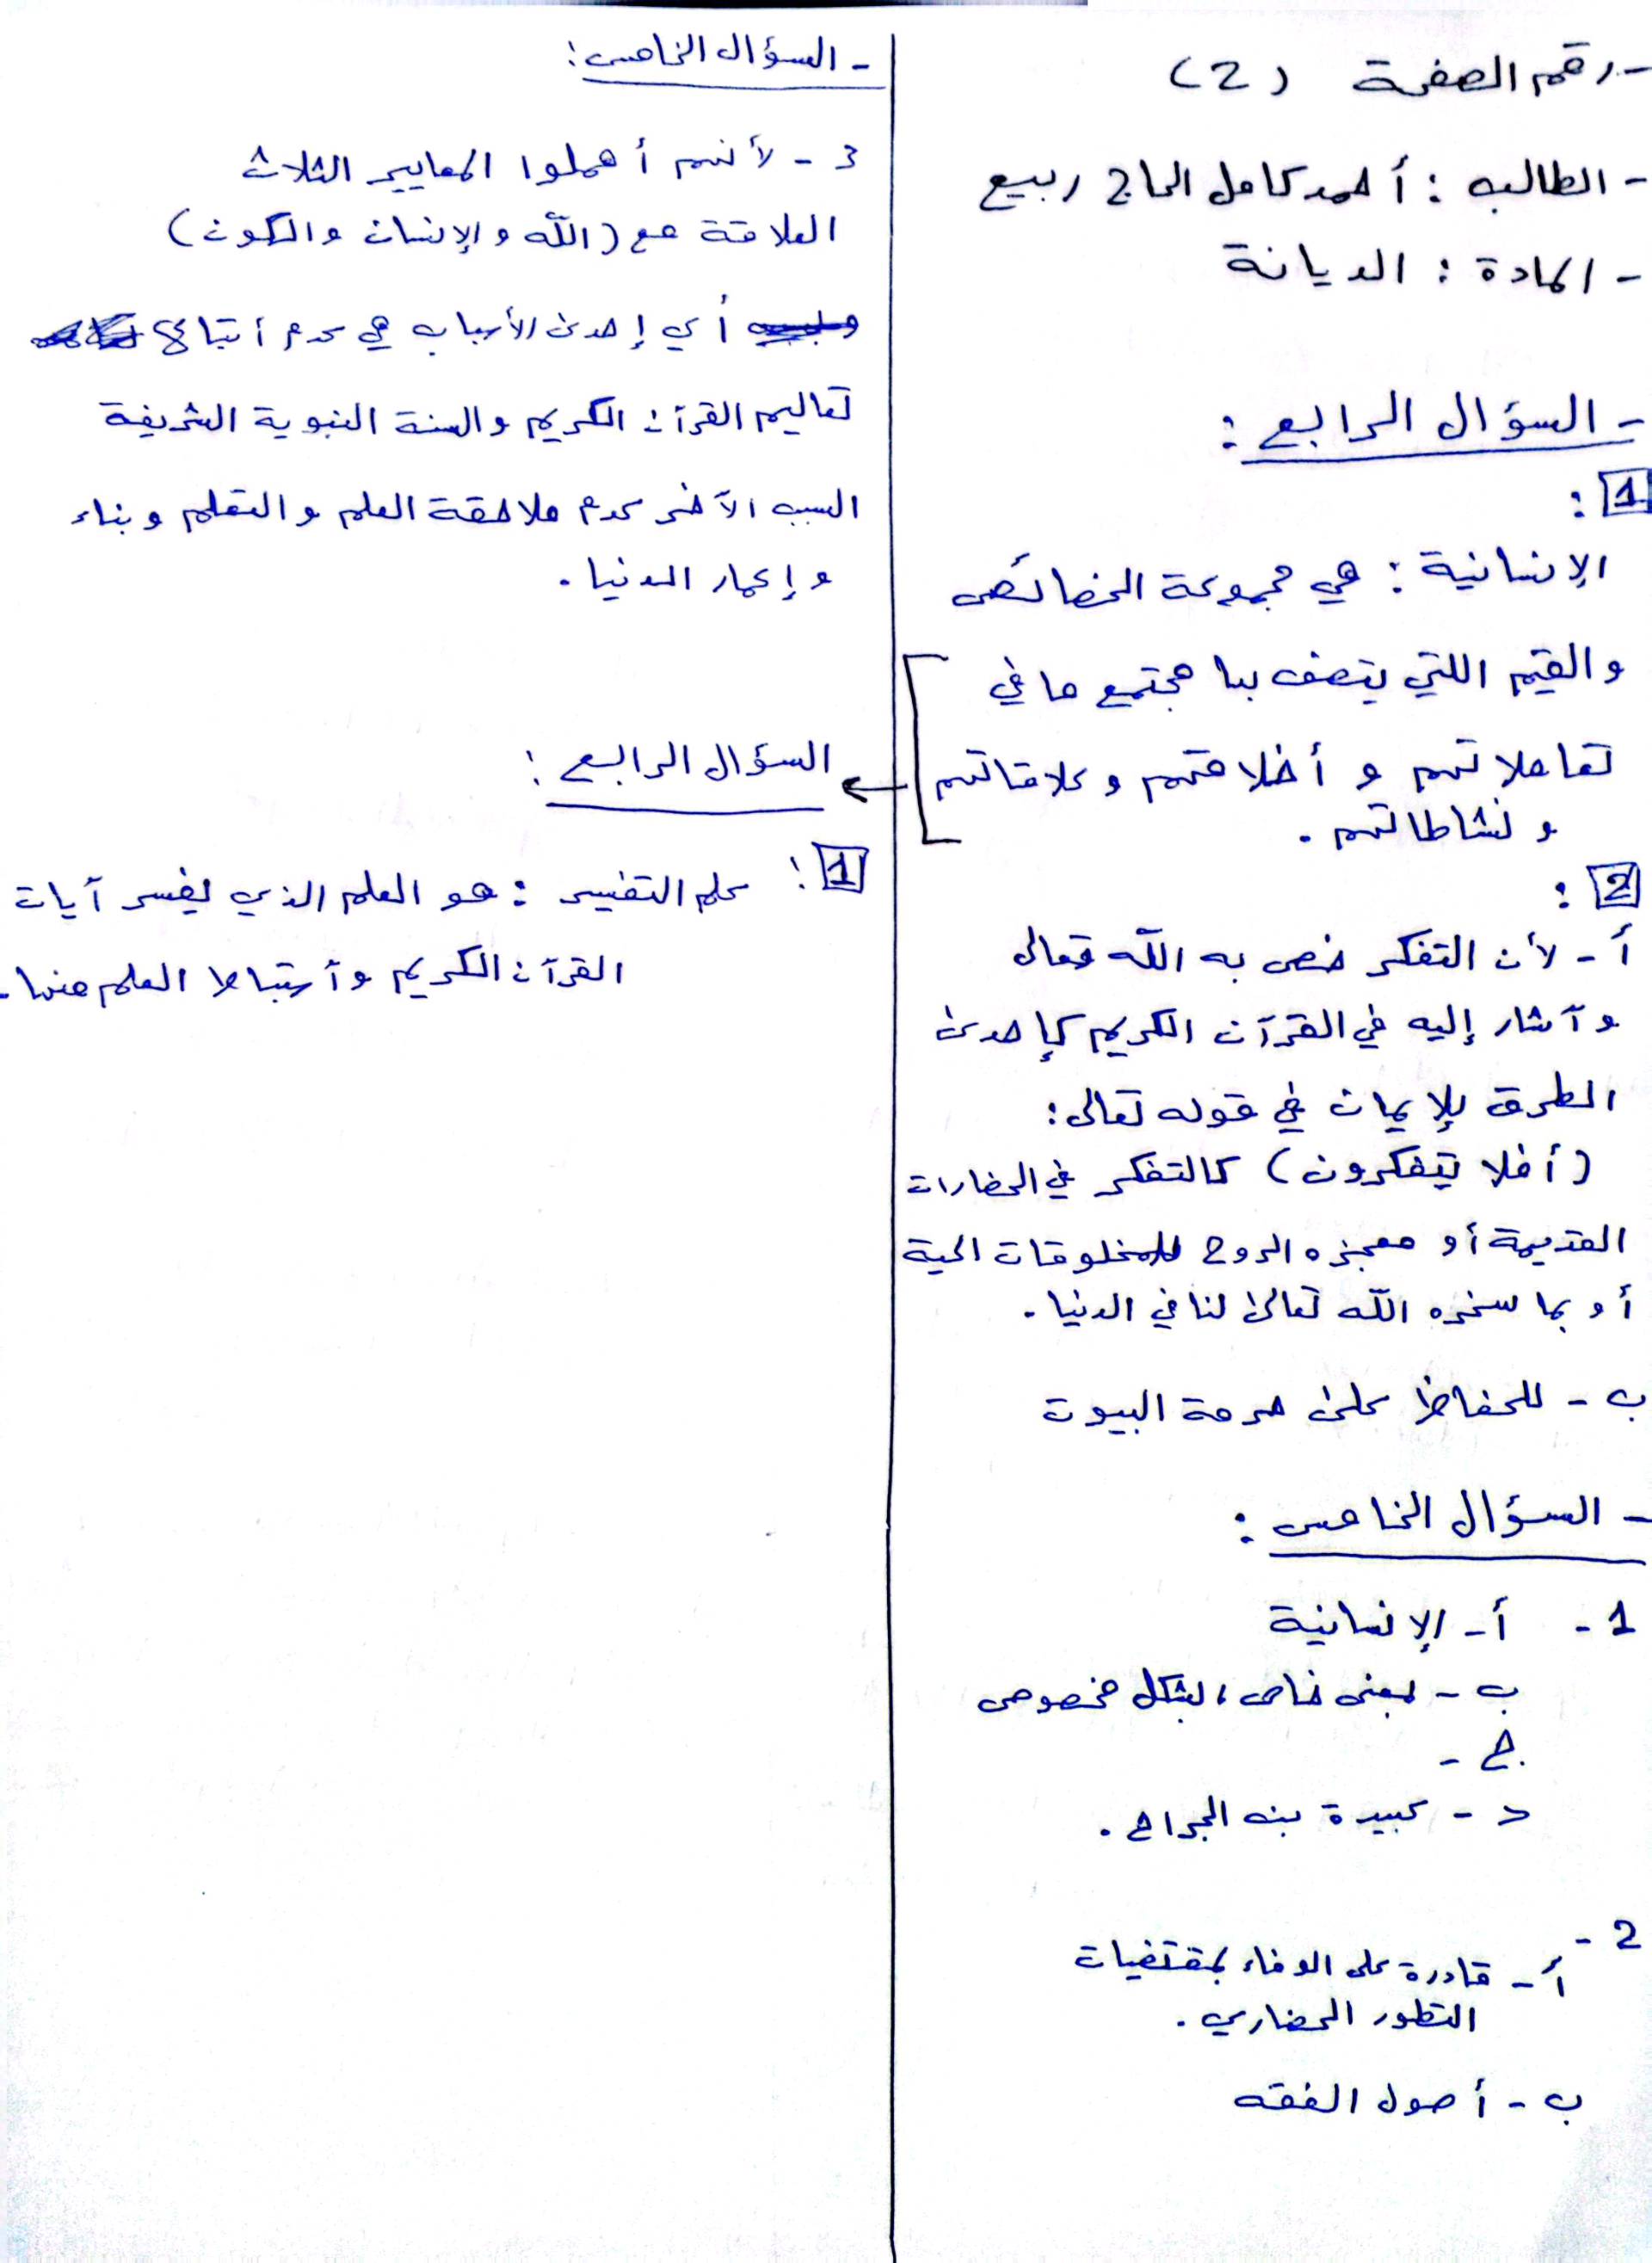 - رقم الصفحة (2)
- الطالب : أحمد كامل الحاج ربيع
- المادة : الديانة
- السؤال الرابع :
1 :
الإنسانية : هي مجموعة الخصائص
والقيم اللتي يتصف بها مجتمع ما في
تعاملاتهم و أخلاقهم و علاقاتهم
و نشاطاتهم .
2 :
أ - لأن التفكر خص به الله تعالى
و آشار إليه في القرآن الكريم كإحدى
الطرق للإيمان في قوله تعالى :
(أفلا يتفكرون) كالتفكر في الحضارات
القديمة أو معجزه الروح للمخلوقات الحية
أو بما سخره الله تعالى لنا في الدنيا .
ب - للحفاظ على حرمة البيوت
- السؤال الخامس :
1 - أ - الإنسانية
ب - لمعنى خاص ، بشكل مخصوص
ج -
د - عبيدة بن الجراح .
2 - أ - قادرة على الوفاء بمقتضيات
التطور الحضاري .
ب - أصول الفقه
- السؤال الخامس :
3 - لأنهم أهملوا المعايير الثلاث
العلاقة مع (الله و الإنسان والكون)
أي إحدى الأسباب هي عدم أتباع
تعاليم القرآن الكريم والسنة النبوية الشريفة
السبب الآخر عدم ملاحقة العلم و التعلم وبناء
و إعمار الدنيا .
السؤال الرابع :
1 : علم التفسير : هو العلم الذي يفسر آيات
القرآن الكريم وأستنباط العلم منها .